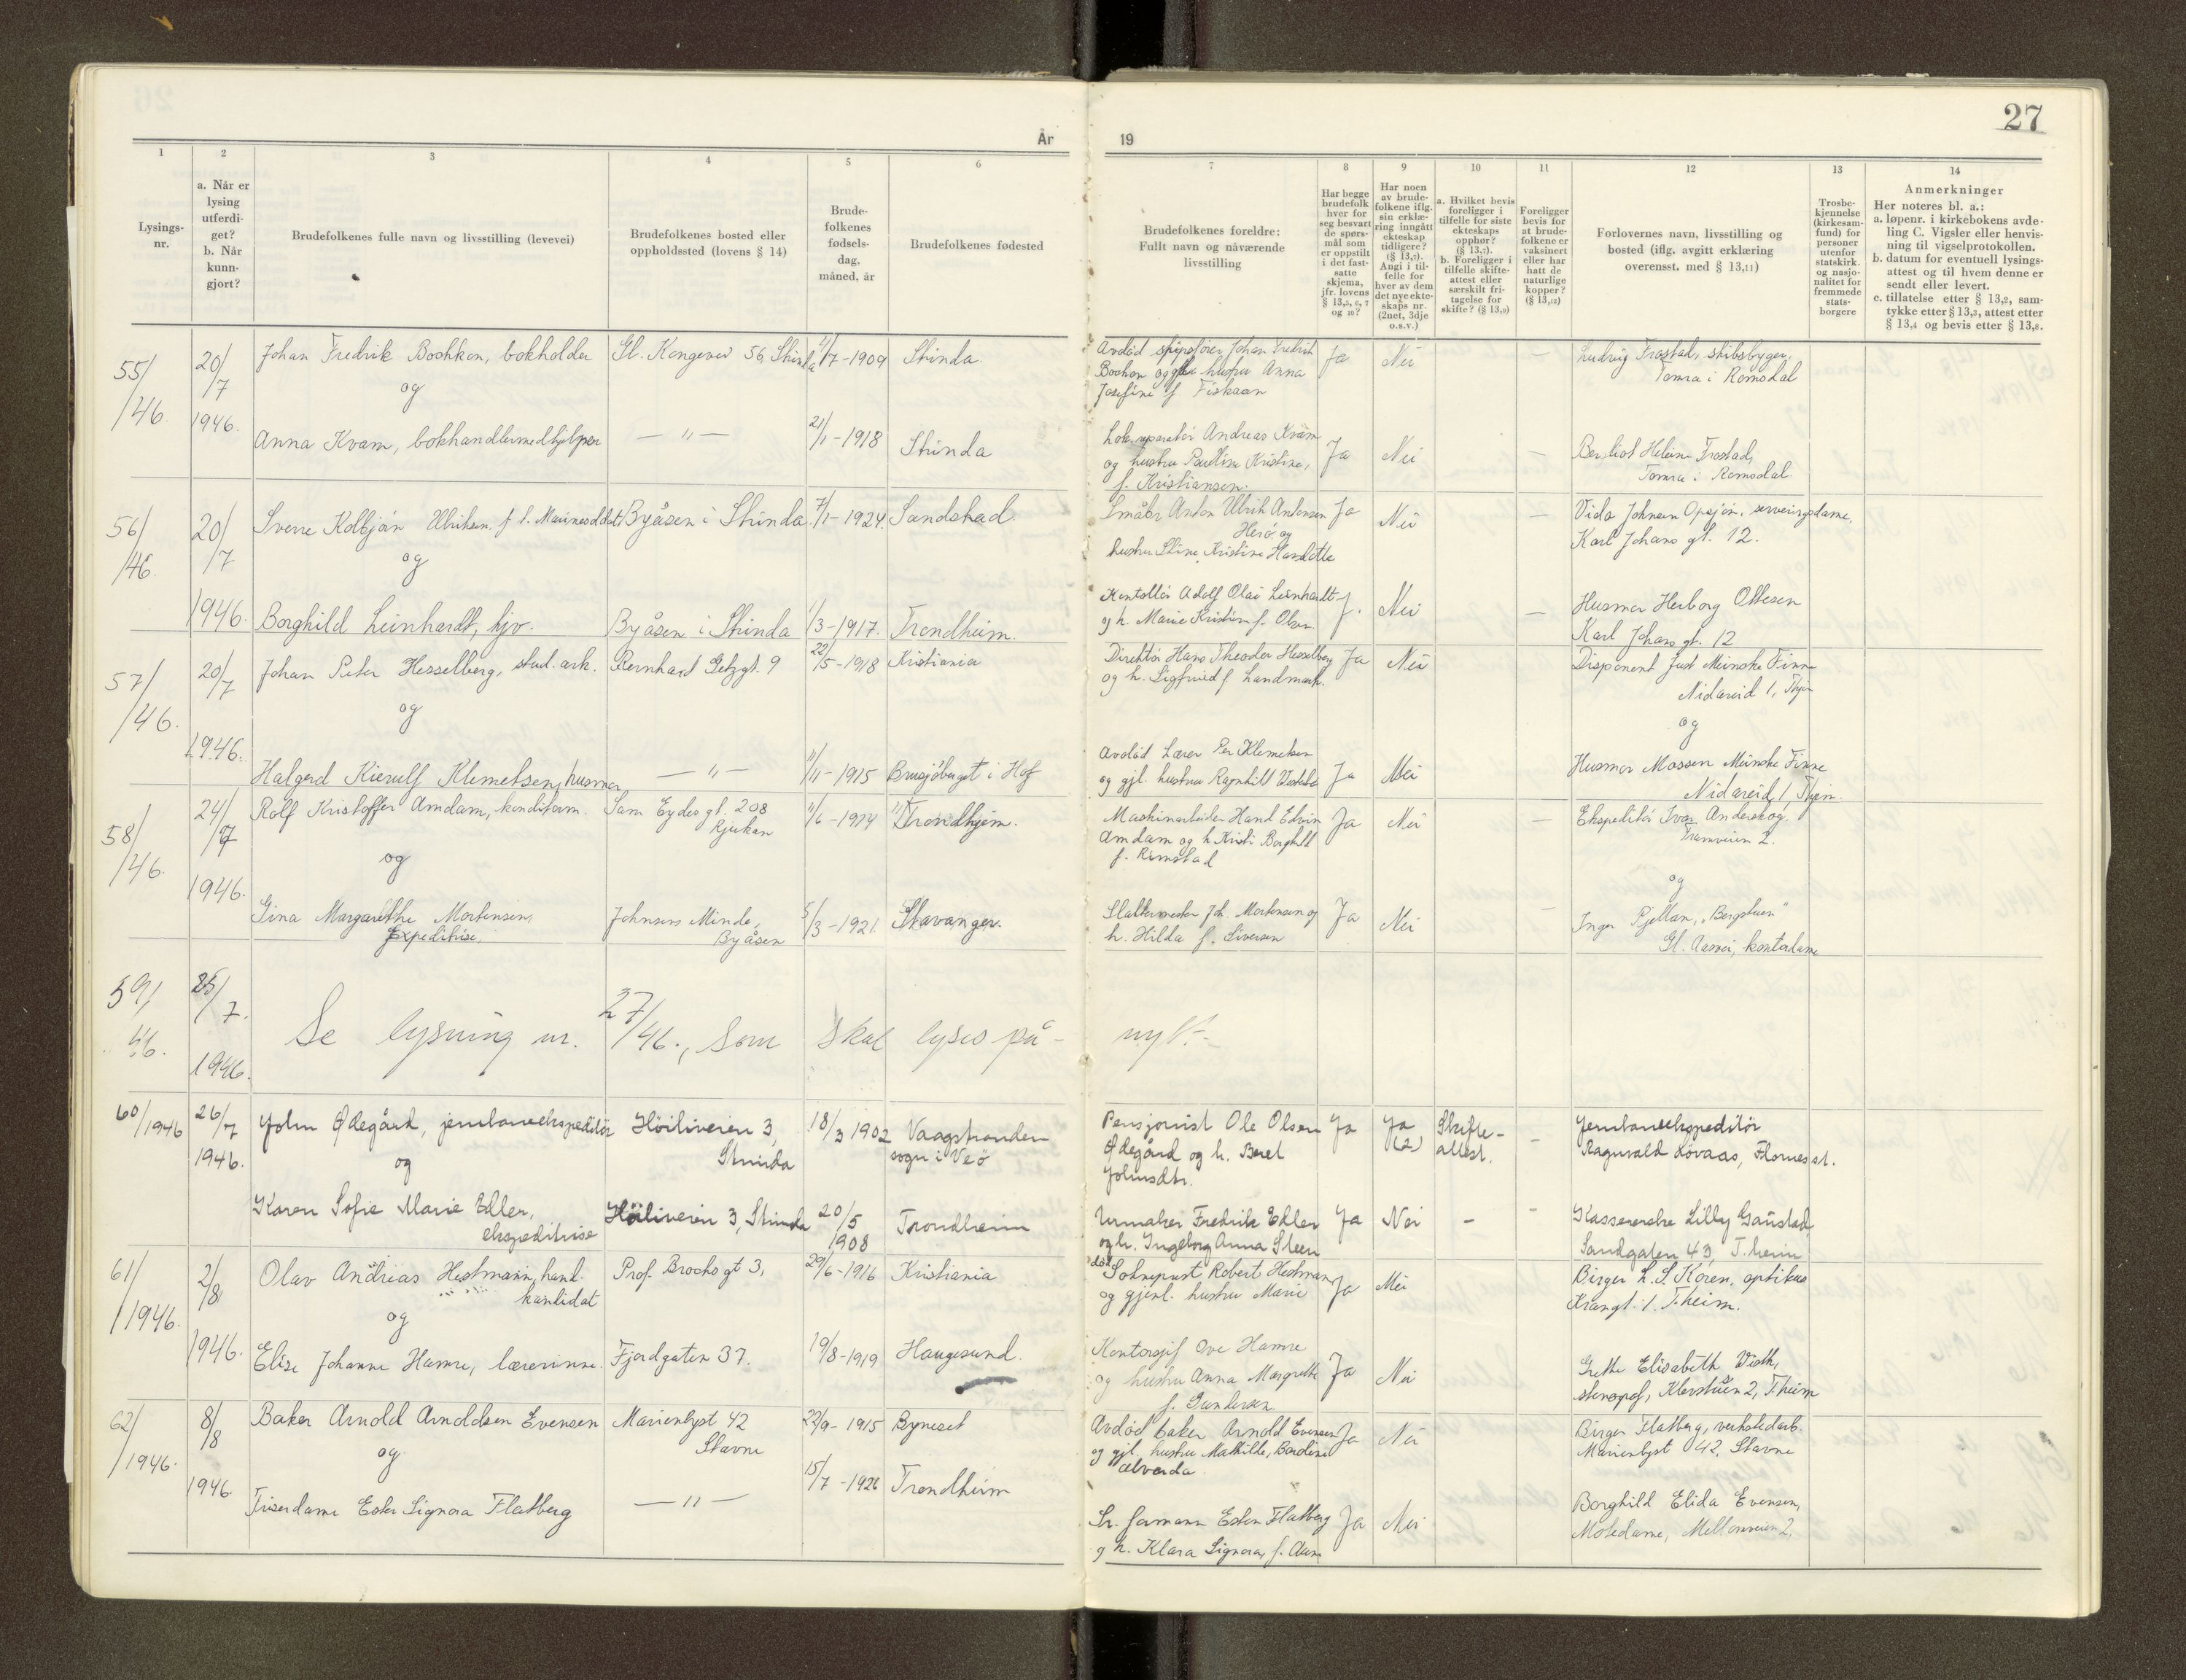 27
År
19
1
2
3
4
5
6
7
8
9
10
11
12
13
14
Lysings-
nr.
a. Når er
lysing
utferdi-
get?
b. Når
kunn-
gjort?
Brudefolkenes fulle navn og livsstilling (levevei)
Brudefolkenes bosted eller
oppholdssted (lovens § 14)
Brude-
folkenes
fødsels-
dag,
måned, år
Brudefolkenes fødested
Brudefolkenes foreldre:
Fullt navn og nåværende
livsstilling
Har begge
brudefolk
hver for
seg besvart
de spørs-
mål som
er oppstilt
i det fast-
satte
skjema,
jfr. lovens
§ 13,5, 6, 7
og 10?
Har noen
av brude-
folkene iflg.
sin erklæ-
ring inngått
ekteskap
tidligere?
(§ 13,7).
Angi i til-
felle for
hver av dem
det nye ekte-
skaps nr.
(2net, 3dje
o.s.v.)
a. Hvilket bevis
foreligger i
tilfelle for siste
ekteskaps
opphør?
(§ 13,7).
b. Foreligger i
tilfelle skifte-
attest eller
særskilt fri-
tagelse for
skifte? (§ 13,9)
Foreligger
bevis for
at brude-
folkene er
vaksinert
eller har
hatt de
naturlige
kopper?
(§ 13,12)
Forlovernes navn, livsstilling og
bosted (iflg. avgitt erklæring
overensst. med § 13,11)
Trosbe-
kjennelse
(kirkesam-
fund) for
personer
utenfor
statskirk.
og nasjo-
nalitet for
fremmede
stats-
borgere
Anmerkninger
Her noteres bl. a.:
a. løpenr. i kirkebokens avde-
ling C. Vigsler eller henvis-
ning til vigselprotokollen.
b. datum for eventuell lysings-
attest og til hvem denne er
sendt eller levert.
c. tillatelse etter § 13,2, sam-
tykke etter § 13,3, attest etter
§ 13,4 og bevis etter § 13,8.
55/46. 20/7 1946.
Johan Fredrik Boshken, bokholder Gl. Kongevei 56, Strinda 11/7-1909 Strinda
og
Anna Kvam, bokhandlermedhjelper — " — 21/1-1918 Strinda
Avdød Johan Fredrik
og hustru Anna
Josefine f. Fiskaan
Ja Nei —
Ludvig Frostad, skibsbygger,
Tomra i Romsdal
Lok.reparatør Andreas Kvam
og hustru Pauline Kristine,
f. Kristiansen.
Ja Nei —
Bergliot Helene Frostad,
Tomra i Romsdal
56/46. 20/7 1946.
Sverre Kolbjørn Ulriksen, Byåsen i Strinda. 7/1-1924. Sandstad
og
Borghild Leinhardt, hjv. Byåsen i Strinda 1/3-1917. Trondheim.
Småbr. Anton Ulrik Antonsen
og
hustru Stine Kristine
Ja Nei
Vida Johnsen Opsjøn, serveringsdame,
Karl Johans gt. 12.
Kontollør Adolf Olai Leinhardt
og h. Marie Kristine f. Olsen.
J. Nei —
Husmor Herborg Ottesen
Karl Johans gt. 12
57/46. 20/7 1946.
Johan Peter Hesselberg, stud. ark. Bernhard Getzgt. 9 29/5-1918 Kristiania
og
Halgerd Kierulf Klemetsen, husmor — " — 11/11-1915 Brusjøberget i Hof
Direktør Hans Theodor Hesselberg
og h. Sigfried f. Landmark.
Ja Nei
Disponent Just Meincke Finne
Nidareid 1, Thjm
og
Avdød Lærer Per Klemetsen
og gjl. hustru Ragnhild
Ja Nei
Husmor Mossen Meincke Finne
Nidareid 1, Thjm.
58/46. 24/7 1946.
Rolf Kristoffer Amdam, konditorm. Sam Eydes gt. 208
Rjukan
11/6-1914 Trondhjem.
og
Gina Margarethe Mortensen,
Expeditrise.
Johnsens Minde,
Byåsen
5/3-1921. Stavanger.
Maskinarbeider Hand Edvin
Amdam og h. Kristi Borghild
f. Rimstad
Ja Nei —
Ekspeditør Ivar Anderskog,
Tramveien 2.
og
Slaktermester Joh. Mortensen og
h. Hilda f. Siversen
Ja Nei —
Inger Pjettan, „Bergstuen"
Gl. Aasvei, kontordame
59/46. 25/7. 1946.
Se lysning nr. 27/46., som skal lyses på- nytt.-
60/1946 26/7 1946.
John Ødegård, jernbaneekspeditør Høiliveien 3,
Strinda
18/3 1902 Vaagstranden
sogn i Veø
og
Karen Sofie Marie Edler,
ekspeditrise
Høiliveien 3, Strinda 20/5 1908 Trondheim
Pensjonist Ole Olsen
Ødegård og h. Beret
Johnsdtr.
Ja Ja (2) Skifte-
attest. –
Jernbaneekspeditør
Ragnvald Løvaas, Flornes st.
Urmaker Fredrik Edler
og h. Ingeborg Anna Steen
Ja Nei – –
Kassererske Lilly Gaustad,
Sandgaten 43, T.heim
61/1946. 2/8 1946.
Olav Andreas Hestmann, hand.
kandidat
Prof. Brochs gt 3, 29/6-1916 Kristiania
og
Elise Johanne Hamre, lærerinne. Fjordgaten 37. 19/8-1919 Haugesund.
Sokneprest Robert Hestmann
og gjenl. hustru Marie
Ja Nei
Birger L. S. Koren, optikus
Krangt. 1. T.heim.
Kontorsjef Ove Hamre
og hustru Anna Margrethe
f. Gundersen
Ja Nei
Grethe Elisabeth With,
stenograf, Klostuen 2, T.heim
62/1946. 8/8 1946.
Baker Arnold Arnoldsen Evensen Marienlyst 42
Stavne
22/9-1915 Byneset
og
Friserdame Ester Signora Flatberg — " — 15/7-1926 Trondheim
Avdød baker Arnold Evensen
og gjl. hustru Mathilde,
Alvorda
Ja Nei
Birger Flatberg, verkstedarb.
Marienlyst 42, Stavne
formann Esten Flatberg
og h. Klara Signora, f. Aune
Ja Nei
Borghild Elida Evensen,
Motedame, Mellomveien 2,